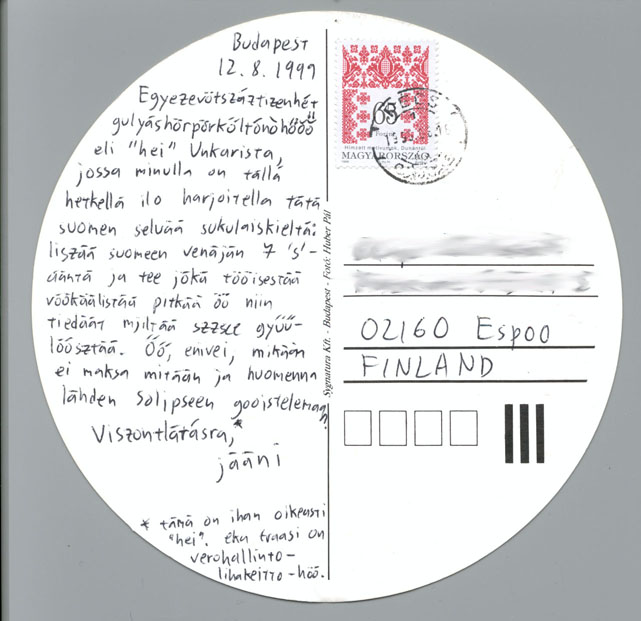 Budapest
12.8.1999
Egyezevötszáztizenhét
gulyáshörpörköltönöhööő
eli "hei" Unkarista,
jossa minulla on tällä
hetkellä ilo harjoitella tätä
suomen selvää sukulaiskieltä:
liszää suomeen venäjän 7 's'-
ääntä ja tee jökä tööisestää
vöökäälistää pitkää öö niin
tiedäät mjiltää szzsce gyűű-
löösztää. Őő, enivei, mikään
ei maksa mitään ja huomenna
lähden Solipseen gooistelemaan
Viszontlátásra,*
jääni
* tämä on ihan oikeasti
"hei". eka fraasi on
verohallinto-
lihakeitto-höö.
Signatura Kft. - Budapest - Fotó: Huber Pál
MAGYARORSZÁG
02160 Espoo
FINLAND